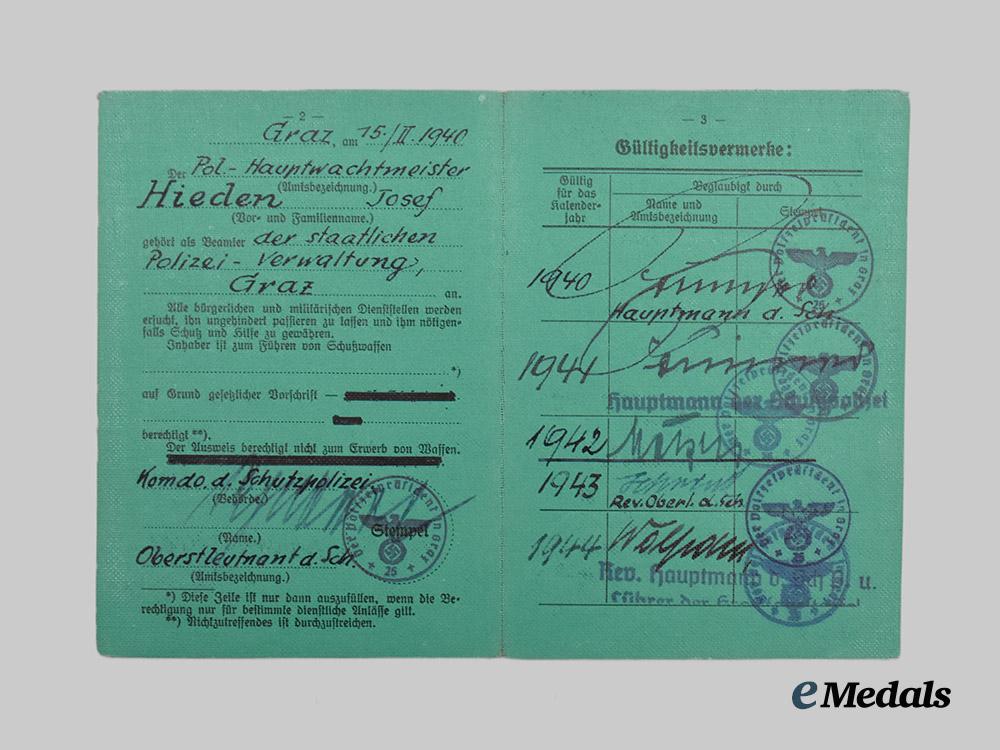 — 2 —
Graz, am 15./II. 1940
Der Pol.- Hauptwachtmeister
(Amtsbezeichnung.)
Hieden Josef
(Vor- und Familienname.)
gehört als Beamter der staatlichen
Polizei - Verwaltung,
Graz an.
Alle bürgerlichen und militärischen Dienststellen werden
ersucht, ihn ungehindert passieren zu lassen und ihm nötigen-
falls Schutz und Hilfe zu gewähren.
Inhaber ist zum Führen von Schußwaffen
*)
auf Grund gesetzlicher Vorschrift —
berechtigt **).
Der Ausweis berechtigt nicht zum Erwerb von Waffen.
Komdo. d. Schutzpolizei
(Behörde.)
Stempel
(Name.)
Oberstleutnant d. Sch.
(Amtsbezeichnung.)
Der Polizeipräsident in Graz
* 25 *
*) Diese Zeile ist nur dann auszufüllen, wenn die Be-
rechtigung nur für bestimmte dienstliche Anlässe gilt.
**) Nichtzutreffendes ist durchzustreichen.
— 3 —
Gültigkeitsvermerke:
Gültig
für das
Kalender-
jahr
Beglaubigt durch
Name und
Amtsbezeichnung
Stempel
1940
Hauptmann d. Sch.
Der Polizeipräsident in Graz
* 25 *
1941
Hauptmann der Schutzpolizei
1942
1943
Rev. Oberl. d. Sch.
Der Polizeipräsident in Graz
1944
Rev. Hauptmann d. Sch. u.
Führer der
eMedals